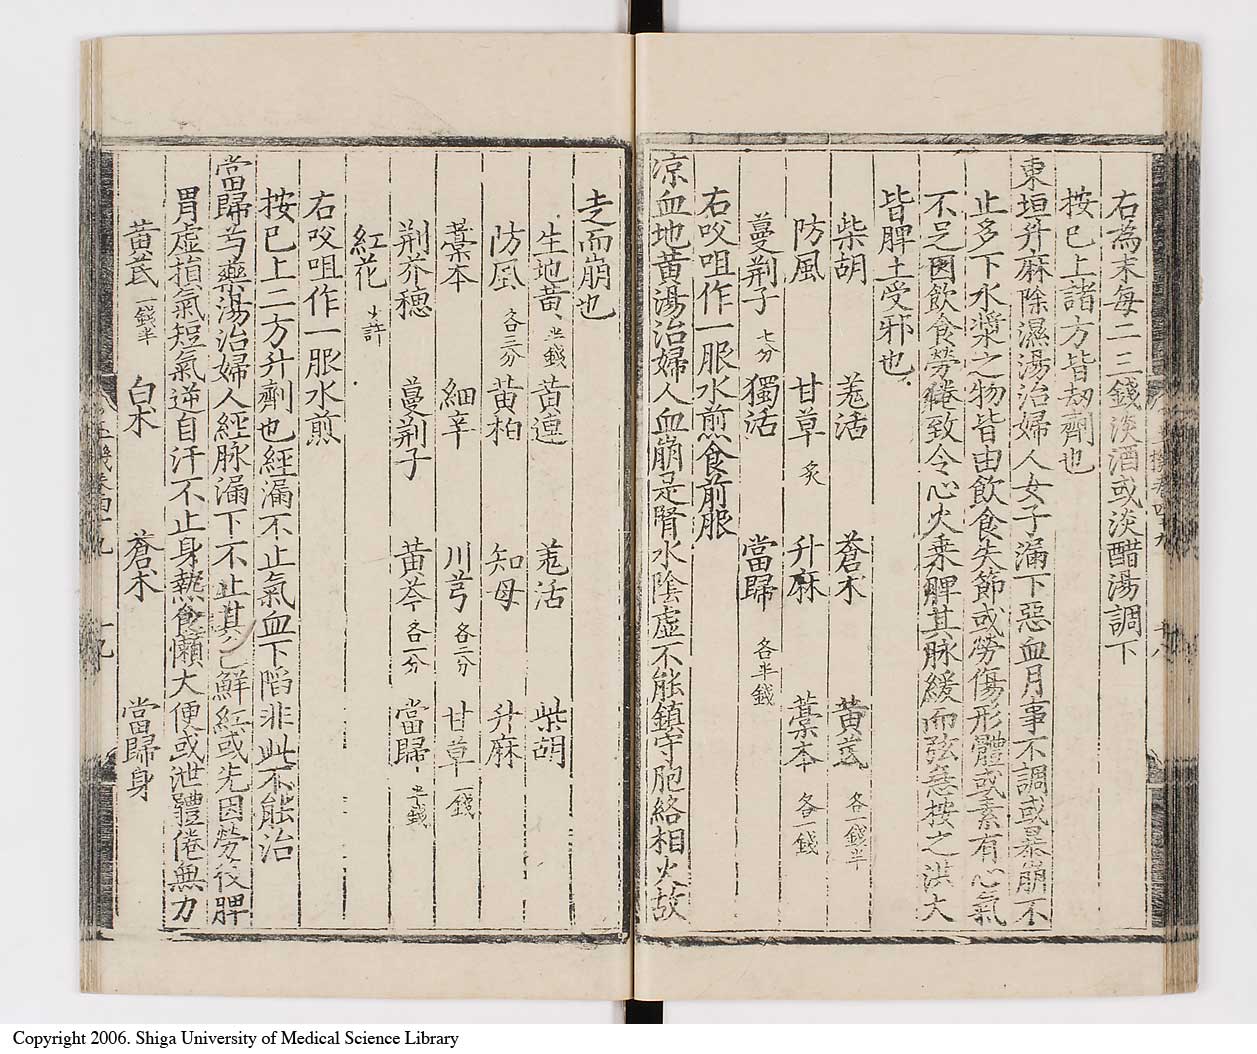 右為末每二三錢淡酒或淡醋湯調下
按已上諸方皆劫劑也
東垣升麻除濕湯治婦人女子漏下惡血月事不調或暴崩不
止多下水漿之物皆由飲食失節或勞傷形體或素有心氣
不足因飲食勞倦致令心火乘脾其脉緩而弦急按之洪大
皆脾土受邪也
柴胡 羗活 蒼术 黃芪 各一錢半
防風 甘草 炙 升麻 藁本 各一錢
蔓荆子 七分 獨活 當歸 各半錢
右㕮咀作一服水煎食前服
凉血地黃湯治婦人血崩是腎水陰虛不能鎮守胞絡相火故
走而崩也
生地黃 半錢 黃連 羗活 柴胡
防風 各三分 黃柏 知母 升麻
藁本 細辛 川芎 各二分 甘草 一錢
荆芥穗 蔓荆子 黃芩 各一分 當歸 半錢
紅花 少許
右㕮咀作一服水煎
按已上二方升劑也經漏不止氣血下陷非此不能治
當歸芍藥湯治婦人經脉漏下不止其色鮮紅或先因勞役脾
胃虛損氣短氣逆自汗不止身熱食懶大便或泄體倦無力
黃芪 一錢半 白术 蒼术 當歸身
十九
Copyright 2006. Shiga University of Medical Science Library